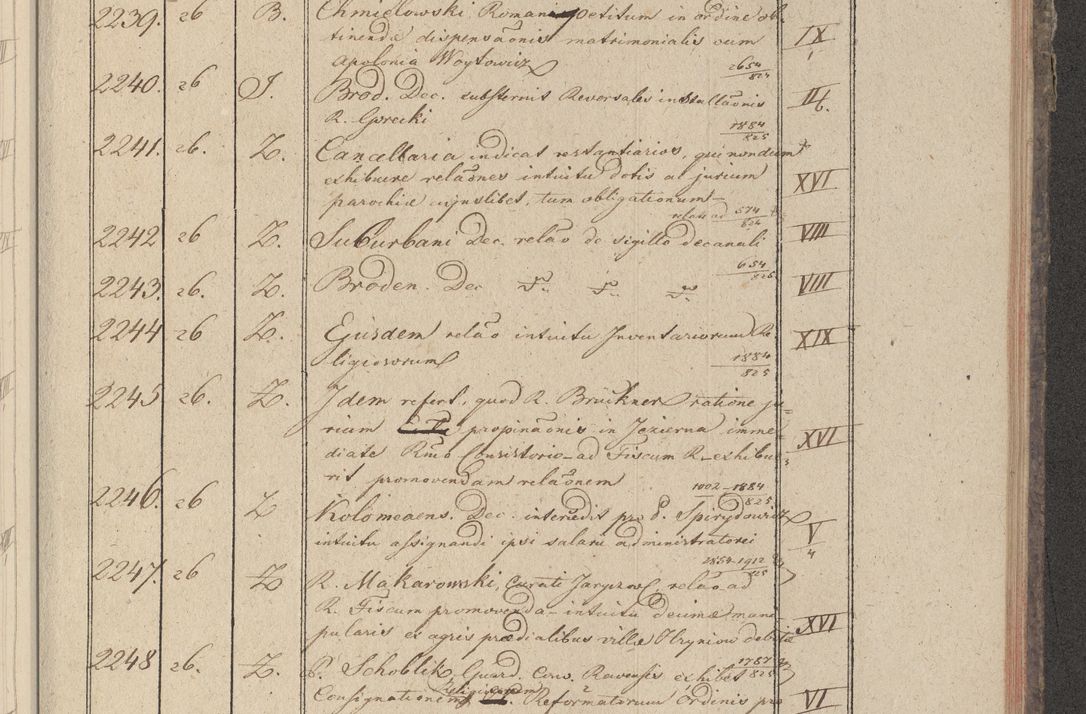 2239. 26 B. Chmielowski Romani petitum in ordine ob-
tinendæ dispensaõnis matrimonialis cum IX
Apolonia Woytowicz 2654/824
2240. 26 J. Brod. Dec. substernit Reversales installaõnis
R. Gorecki 1884/825
2241. 26. Z. Cancellaria indicat restantiarios, qui nondum
exhibuere relaõnes intuitu dotis ac jurium XVI
parochiæ cujuslibet, tum obligationum
relate ad 574/824
2242 26 Z. Suburbani Dec. relaõ de sigillo decanali VIII
654/826
2243. 26. Z. Broden. Dec VIII
2244 26 Z. Ejusdem relaõ intuitu Inventariorum Re- XIX
ligiosorum 1884/825
2245 26. Z. Idem refert, quod R. Brückner ratione ju-
rium propinaõnis in Jezierna imme- XVI
diate Rmo Consistorio ad Fiscum R. exhibue-
rit promovendam relaõnem 1002-1884/825
2246. 26 Z Kolomeaens. Dec. intercedit pro P. Spirydowicz V/4
intuitu assignandi ipsi salarii administratorei
1854-1912/825
2247. 26 Z R. Makarowski, Curati relaõ ad
R. Fiscum promovenda intuitu decimæ mani-
pularis ex agris prædialibus villæ Hryniow debitæ XVI
1787/825
2248 26. Z. P. Schoblik, Guard. Conv. Ravensis exhibet
Consignationem religiosorum Reformatorum Ordinis pro VI